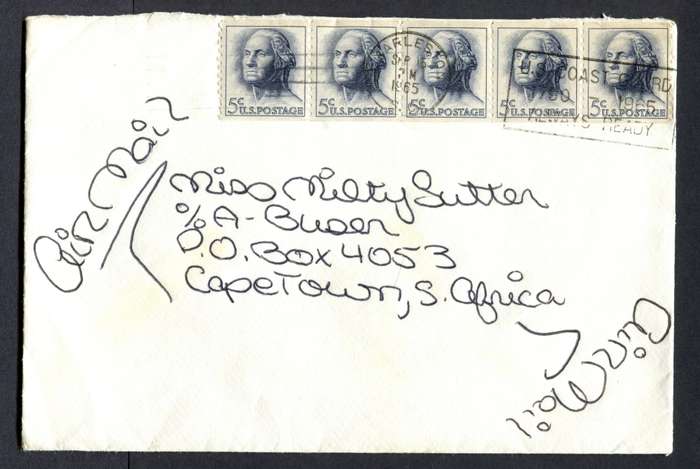 5¢ U.S. POSTAGE
5¢ U.S. POSTAGE
5¢ U.S. POSTAGE
5¢ U.S. POSTAGE
5¢ U.S. POSTAGE
SEP
1965
U.S. COAST GUARD
1790 1965
ALWAYS READY
Air Mail
Miss Milty Sutter
% A-Buser
P.O. Box 4053
CapeTown, S. Africa
Air Mail